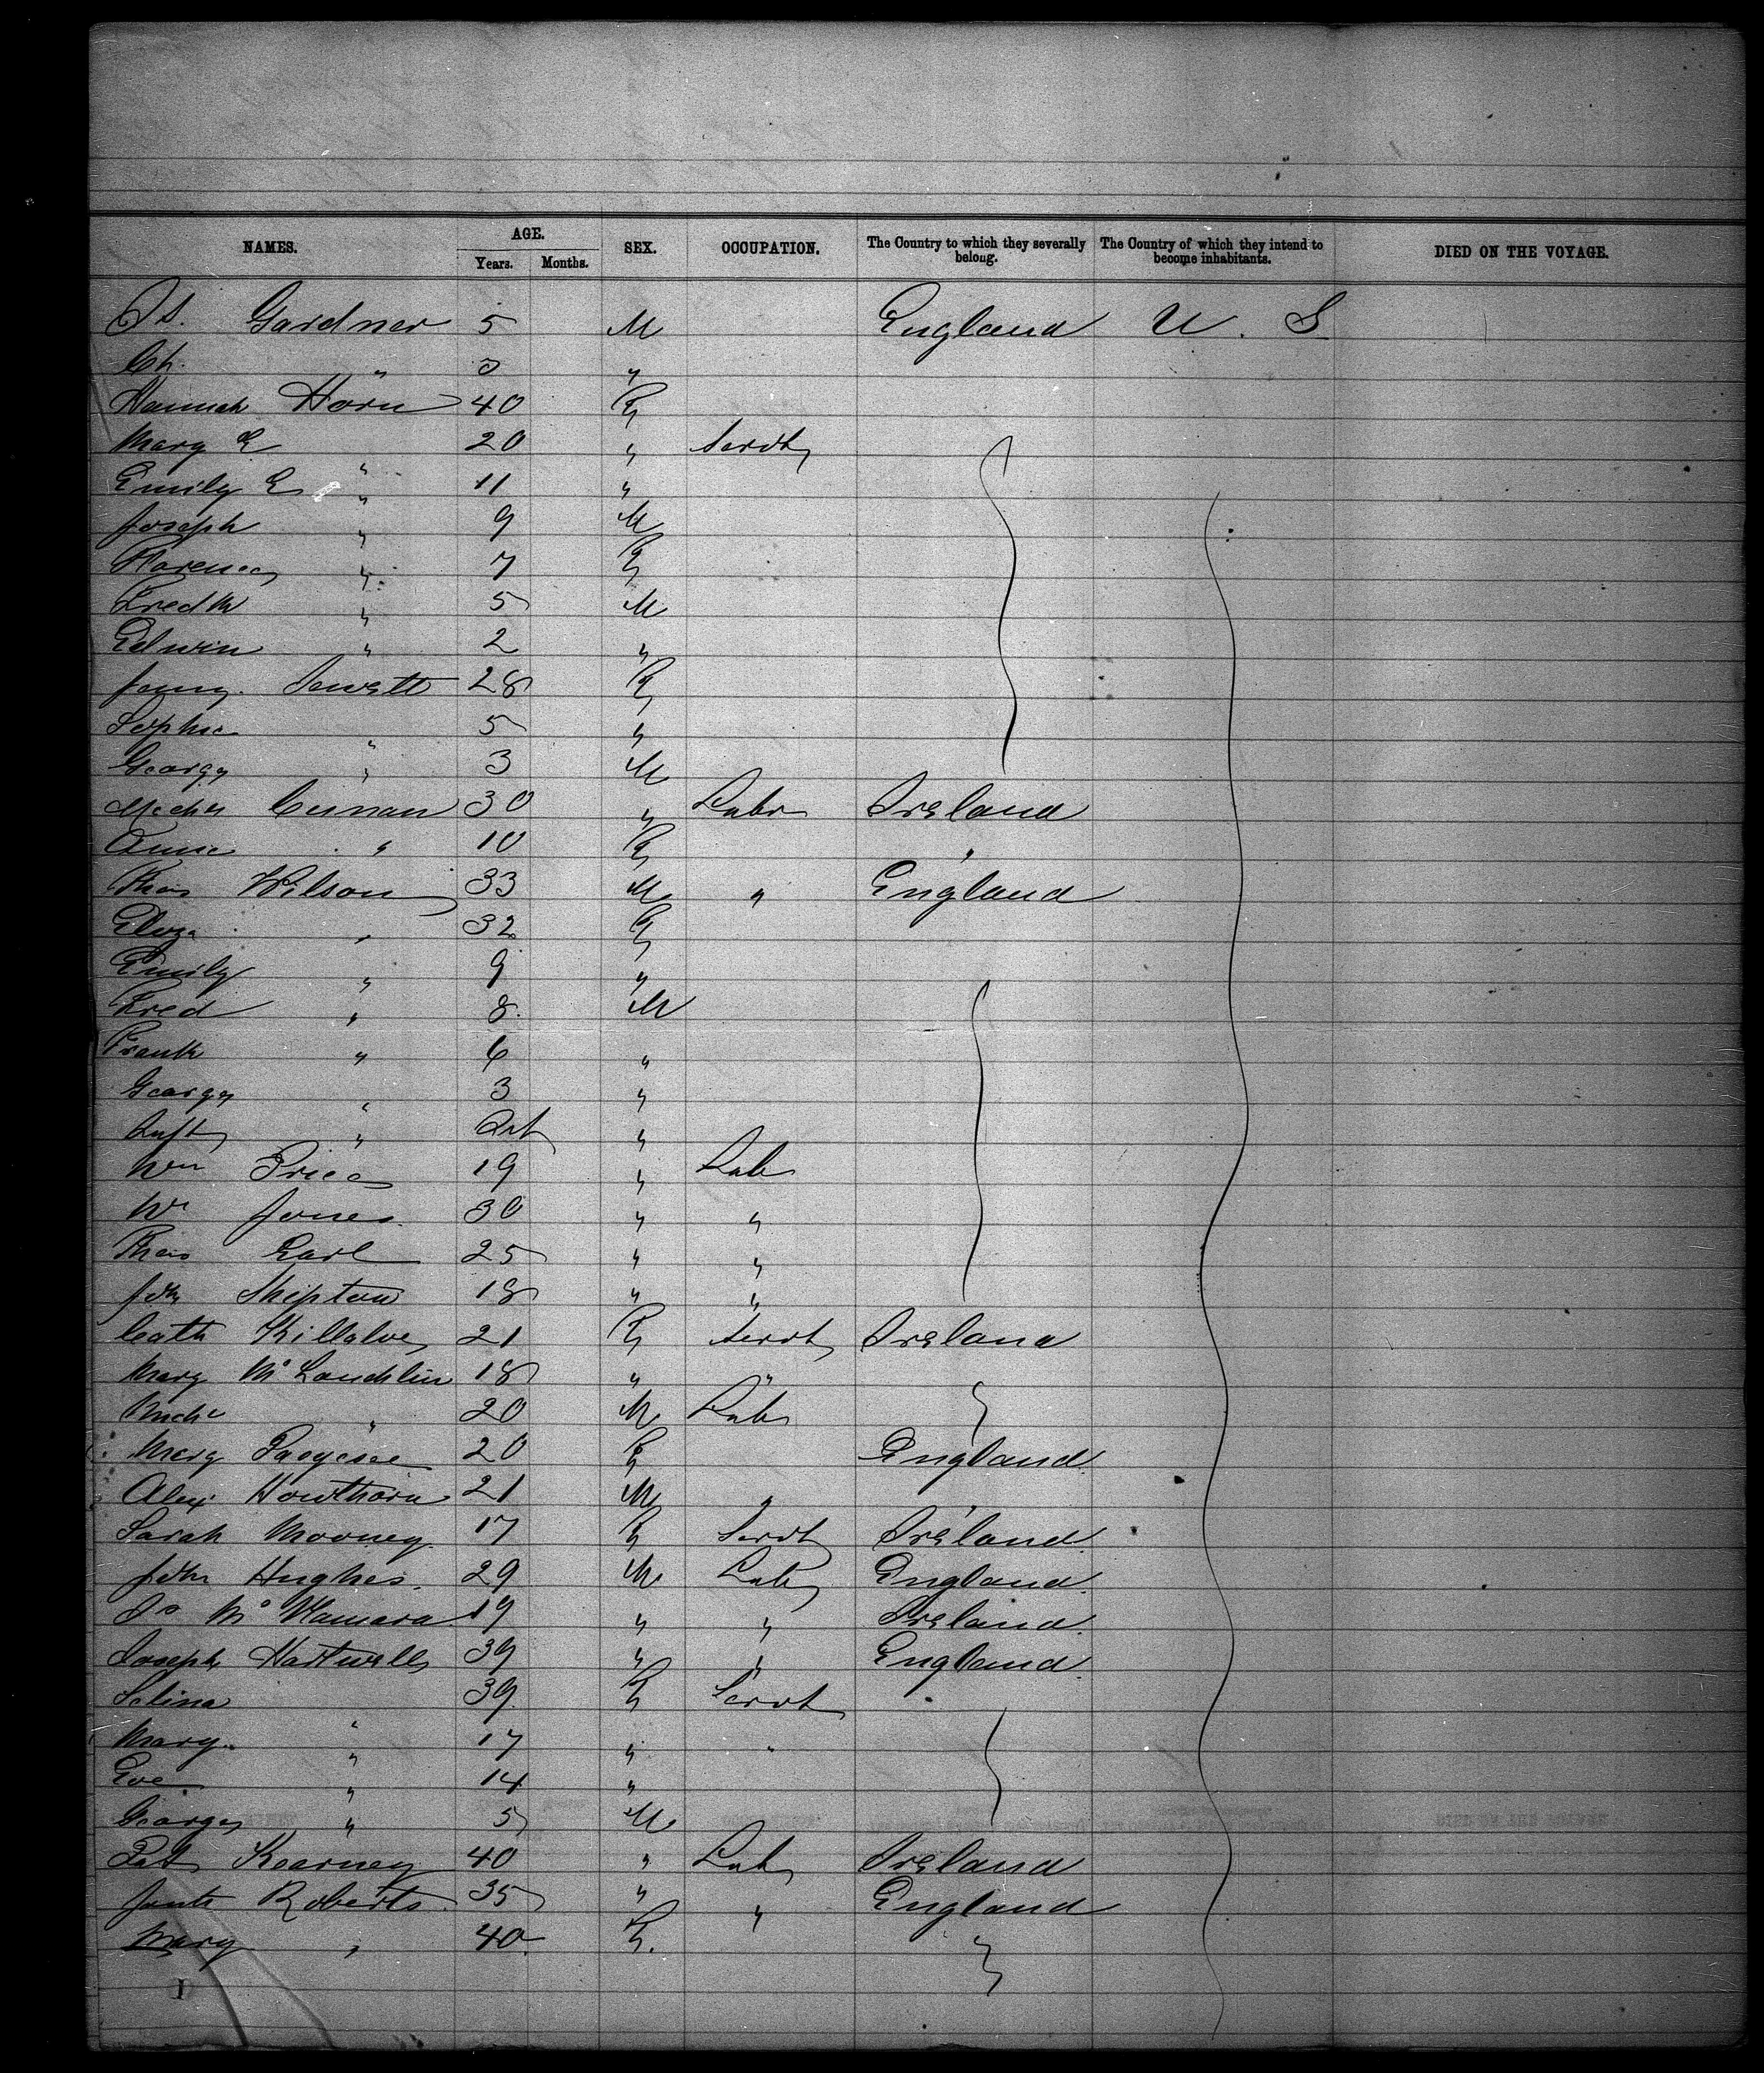 NAMES. AGE. SEX. OCCUPATION. The Country to which they severally belong. The Country of which they intend to become inhabitants. DIED ON THE VOYAGE.
Years. Months.
Gardner 5 M England U. S
Ch. " 3 "
Hannah Horn 40 F
Mary E " 20 " Servt
Emily E " 11 "
Joseph " 9 M
Florence " 7 F
Fredk " 5 M
Edwin " 2 "
Jenny. Sewett 28 F
Sophia " 5 "
George " 3 M
Cunan 30 " Labr Ireland
Annie " 10 F
Thos Wilson 33 M " England
Eliza " 32 F
Emily " 9 "
Fred " 8 M
Frank " 6 "
George " 3 "
Inft " "
Wm Price 19 " Lab
Wm Jones 30 " "
Thos Earl 25 " "
John Shipton 18 " "
Cath 21 F Servt Ireland
Mary McLaughlin 18 " "
Michl " 20 M Lab
Mary 20 F England
Alex Howthorn 21 M "
Sarah Mooney 17 F Servt Ireland
John Hughes. 29 M Lab England
McNamara 19 " " Ireland
Joseph Hartwell 39 " " England
Selina " 39 F Servt
Mary " 17 " "
Eve " 14 "
George " 5 M
Pat Kearney 40 " Lab Ireland
Roberts 35 " " England
Mary " 40 F.